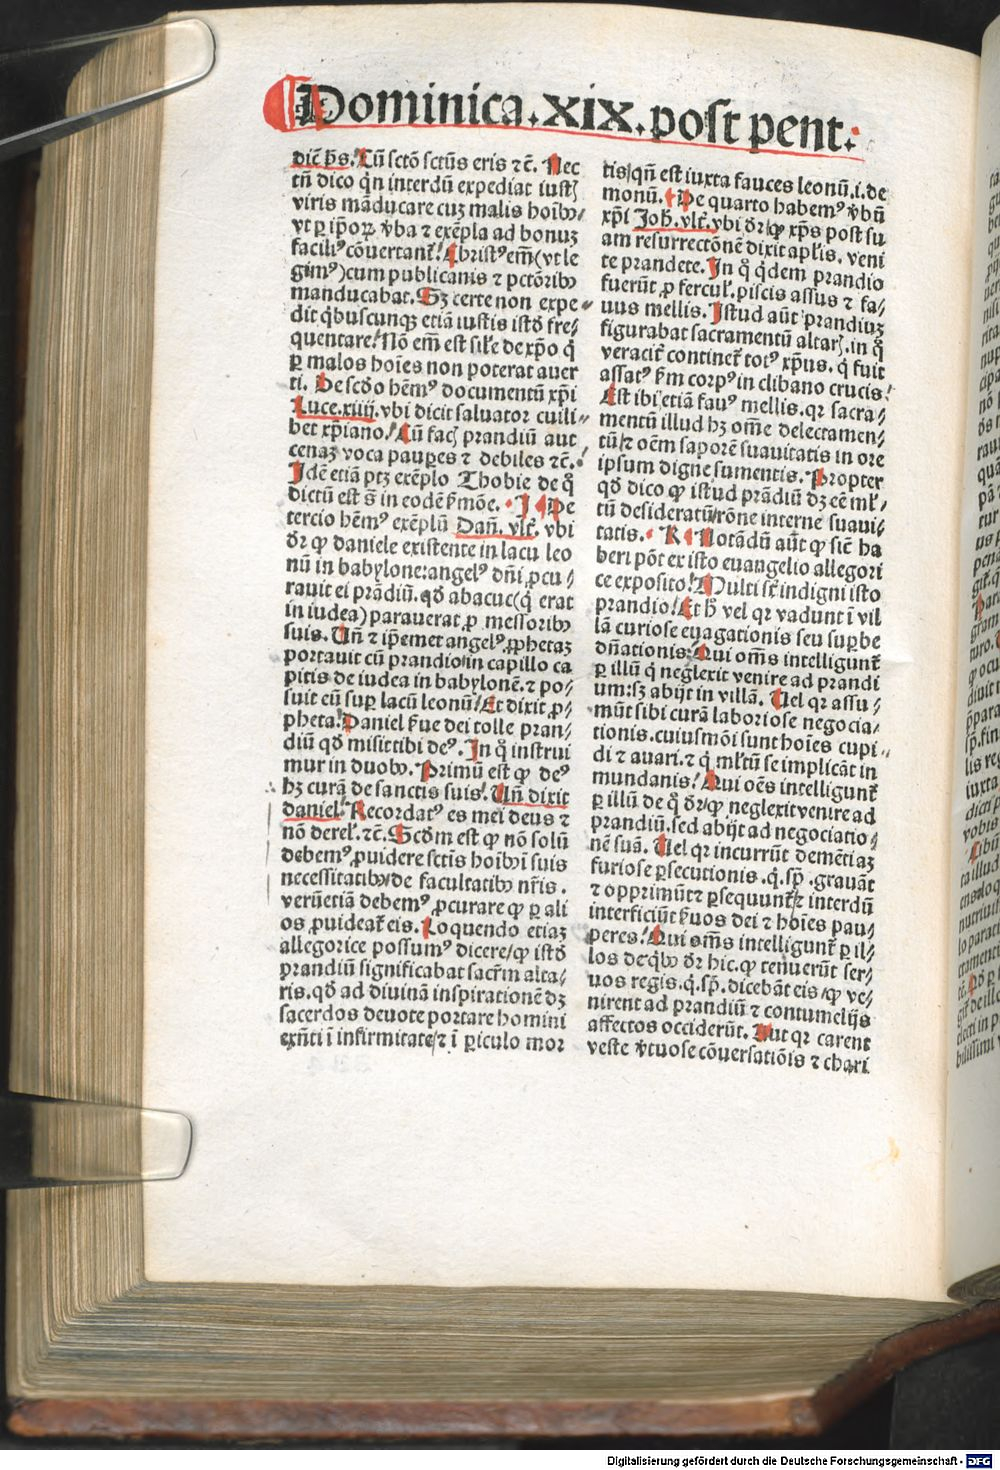 Dominica.XIX.post pent.
dicē ħs. Cū sctō sctūs eris ⁊c̄. Nec
tn̄ dico qn̄ interdū expediat iustꝫ
viris māducare cuꝫ malis hoībꝰ/
vt ꝑ ipoꝝ v̓ba ⁊ exēpla ad bonuꝫ
faciliꝰ cōuertant̄! Christꝰ em̄ (vt le
gimꝰ) cum publicanis ⁊ pctōribꝰ
manducabat. Sꝫ certe non expe⸗
dit qͥbuscunqꝫ etiā iustis istð fre⸗
quentare! Nō em̄ est sil̓e de xp̄o qͥ
ꝑ malos hoīes non poterat auer
ti. De scðo hēmꝰ documentū xp̄i
Luce.xiiij. vbi dicit saluator cuili⸗
bet xp̄iano! Cū facꝫ prandiū aut
cenaꝫ voca pauꝑes ⁊ debiles ⁊c̄.
Idē etiā ptꝫ exēplo Thobie de qͦ
dictū est s̄ in eodē ẜmōe. I De
tercio hēmꝰ exēplū Dan̄. vlt̄. vbi
dr̄ ꝙ daniele existente in lacu leo
nū in babylone: angelꝰ dn̄i ꝓcu⸗
rauit ei prādiū. qð abacuc (qͥ erat
in iudea) parauerat ꝓ messoribꝰ
suis. Un̄ ⁊ ip̄emet angelꝰ ꝓphetaꝫ
portauit cū prandio/in capillo ca
pitis de iudea in babylonē. ⁊ po⸗
suit eū suꝑ lacū leonū! Et dixit ꝓ⸗
pheta! Daniel ẜue dei tolle pran⸗
diū qð misit tibi deꝰ. In qͦ instrui
mur in duobꝰ. Primū est ꝙ deꝰ
hꝫ curā de sanctis suis! Un̄ dixit
daniel! Recordatꝰ es mei deus ⁊
nō derel̓. ⁊c̄. Scðm est ꝙ nō solū
debemꝰ ꝓuidere sctis hoībꝰ in suis
necessitatibꝰ/de facultatibꝰ nr̄is.
verū etiā debemꝰ ꝓcurare ꝙ ꝑ ali
os ꝓuideat̄ eis. Loquendo etiaꝫ
allegorice possumꝰ dicere/ꝙ istð
prandiū significabat sacrm̄ alta⸗
ris. qð ad diuinā inspirationē dꝫ
sacerdos deuote portare homini
exn̄ti ī infirmitate/⁊ ī ꝑiculo mor
tis/qn̄ est iuxta fauces leonū.i.de
monū. De quarto habemꝰ v̓bū
xp̄i Joh̄. vlt̄. vbi dr̄ ꝙ xp̄s post su
am resurrectōnē dixit apl̓is. veni
te prandete. In qͦ qͥdem prandio
fuerūt ꝓ fercul̓. piscis assus ⁊ fa⸗
uus mellis. Istud aūt prandiuꝫ
figurabat sacramentū altarꝫ. in qͦ
veracit̄ continet̄ totꝰ xp̄us. qͥ fuit
assatꝰ ẜm corpꝰ in clibano crucis!
Est ibi etiā fauꝰ mellis. qr sacra⸗
mentū illud hꝫ om̄e delectamen⸗
tū/⁊ oēm saporē suauitatis in ore
ipsum digne sumentis. Propter
qð dico ꝙ istud prādiū dꝫ eē ml̓⸗
tū desideratū/rōne interne suaui⸗
tatis. K Notādū aūt ꝙ sic̄ ha
beri pōt ex isto euangelio allegori
ce exposito! Multi st̄ indigni isto
prandio! Et hͦ vel qr vadunt ī vil
lā curiose euagationis seu suꝑbe
dn̄ationis! Qui om̄s intelligunt̄
ꝑ illū qͥ neglexit venire ad prandi
um: sꝫ abijt in villā. Uel qr assu⸗
mūt sibi curā laboriose negocia⸗
tionis. cuiusmōi sunt hoīes cupi⸗
di ⁊ auari. ⁊ qͥ ml̓tū se implicāt in
mundanis! Qui oēs intelligunt̄
ꝑ illū de qͦ dr̄/ꝙ neglexit venire ad
prandiū. sed abijt ad negociatio⸗
nē suā. Uel qr incurrūt demētiaꝫ
furiose ꝑsecutionis. q.sp̄. grauāt
⁊ opprimūt ⁊ ꝑsequunt̄/⁊ interdū
interficiūt ẜuos dei ⁊ hoīes pau⸗
peres! Qui om̄s intelligunt̄ ꝑ il⸗
los de qͥbꝰ dr̄ hic. ꝙ tenuerūt ser⸗
uos regis. q.sp̄. dicebāt eis/ꝙ ve⸗
nirent ad prandiū ⁊ contumelijs
affectos occiderūt. Aut qr carent
veste v̓tuose cōuersatiōis ⁊ chari
Digitalisierung gefördert durch die Deutsche Forschungsgemeinschaft - DFG